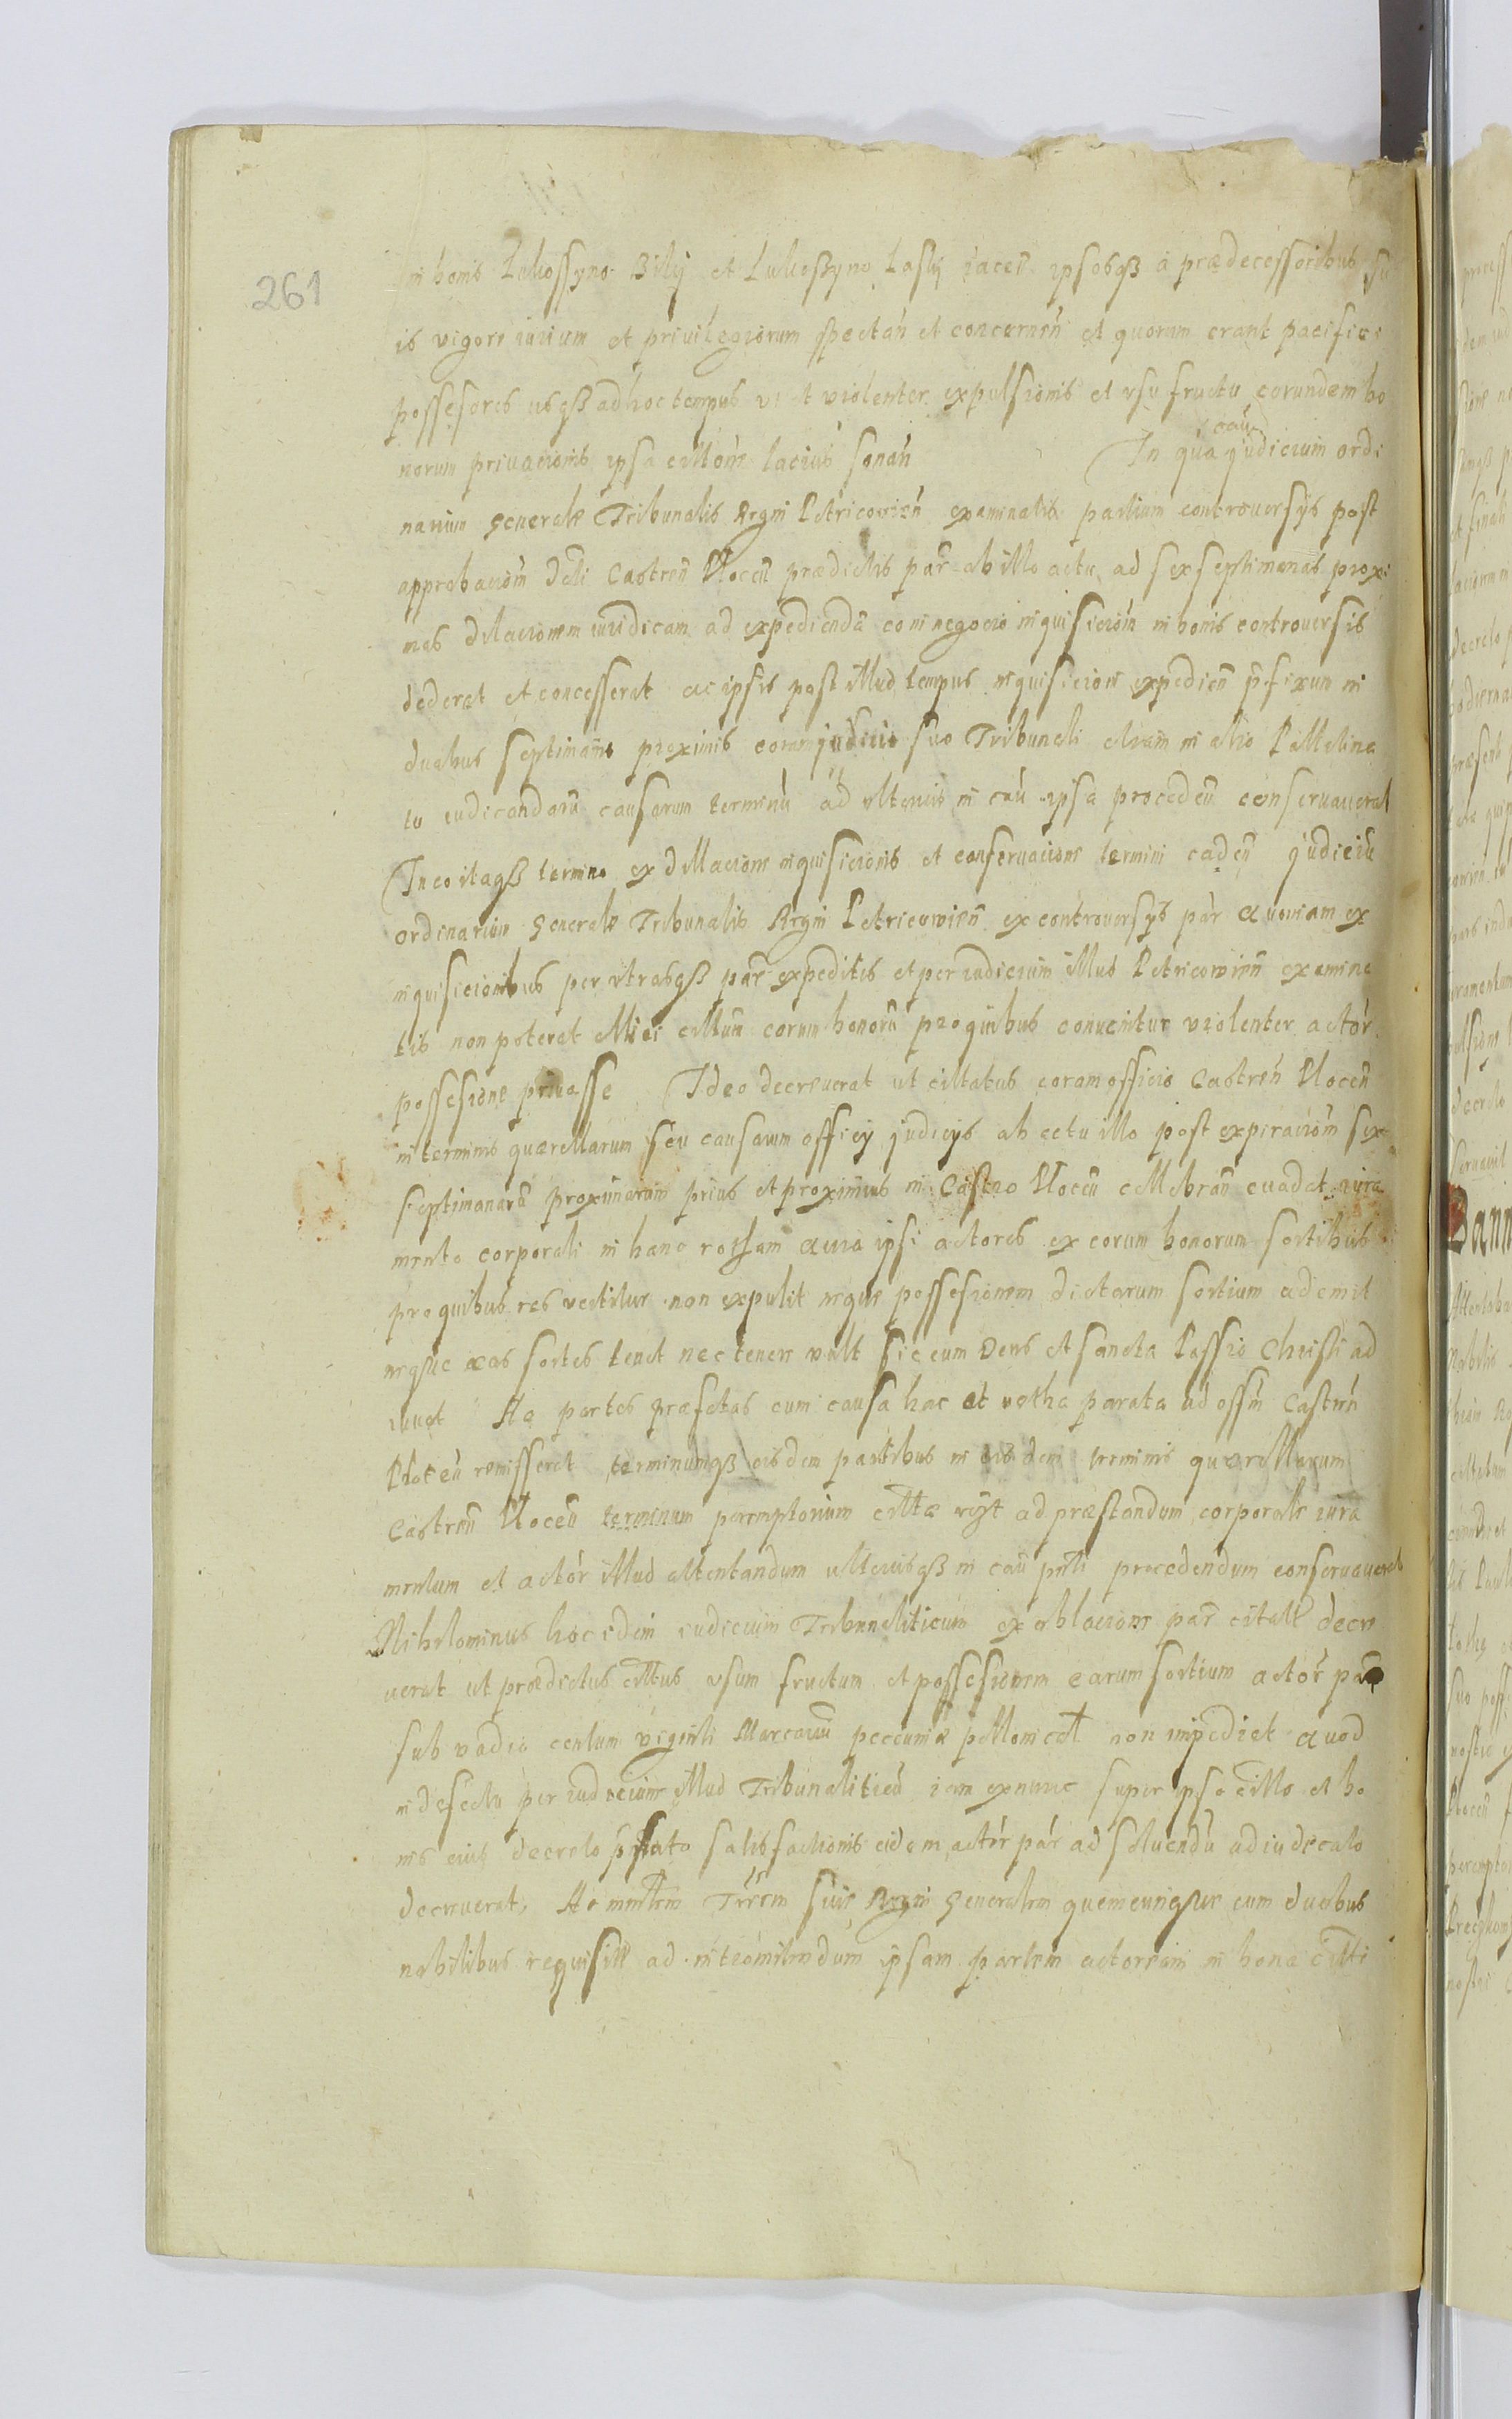 261
in bonis Lukossyno Bilij et Lukoszyno Laski iacen ipsosqß a prædecessoribus su
is vigore iurium et priuilegiorum spectań et concerneń et quorum erant pacifici
possesores usqß ad hoc tempus vi et violenter expulsionis et vsu fructu eorundem bo
norum priuacionis ipsa cittońe lacius sonań In qua caú judicium ordi
narium generale Tribunalis Regni Petricouień examinatis partium controuersijs post
approbacioḿ Dcti Castreń Plocen prædictis par ab illo actu ad sex septimanas proxi
mas dilacionem iuridicam ad expediendā eo in negocio inquisicioń in bonis controuersis
dederat et concesserat ac ipsis post illud tempus inquisicioni expedień p̄fixum in
duabus septimanis proximis coram judicio suo Tribunali etiam in alio Pallatina
tu iudicandarū causarum terminū ad vlterius in caú ipsa proceden̄ conseruauerat
In eo itaqß termino ex dillacione inquisicionis et conseruacione termini caden̄ judiciū
ordinarium generale Tribunalis Regni Petricowien̄ ex controuersijs pár quoniam ex
inquisicionibus per vtrasqß par expeditis et per iudicium illud Petricowien̄ examina
tis non poterat ellici cittum eorum bonorū pro quibus conuenitur violenter actór
possesione priuasse Ideo decreuerat ut cittatus coram officio Castreń Plocen̄
in terminis quærellarum seu causarum officij judicijs ab actu illo post expiracioḿ sex
septimanarū proximarum prius et proximius in Castro Plocen̄ cellebran̄ euadat iura
mento corporali in hanc rotham quia ipsi actores ex eorum bonorum sortibus
pro quibus res vertitur non expulit neque possesionem dictarum sortium ademit
neque eas sortes tenet nec tenere vult sic eum Deus et sancta Passio Christi ad
iuuet Ac partes præfatas cum causa hac et rotha parata ad offm̄ Castreń
Plocen̄ remisserat terminumqß eisdem partibus in eisdem terminis quærellarum
Castren̄ Plocen̄ terminum peremptorium cittæ reijt ad præstandum corporale iura
mentum et actór illud attentandum ulteriusqß in caú pnti procedendum conseruauerat
Nihilominus hoc idem iudicium Tribunaliticum ex oblacione par citatt decre
uerat ut prædictus cittus vsum fructum et possesionem earum sortium actór par
sub vadio centum viginti Marcarū peccuniæ pollonicæt non impediet quod
in defectu per iudicium illud Tribunaliticū iam ex nunc super ipso citto et bo
nis eius decreto satisfactionis eidem actór pár ad soluendū adiudecato
decreuerat, Ac mnlm Trrem siue Regni Generalem quemcunque cum duobus
nobilibus requisitt ad intromitendum ipsam partem actoream in bona citti